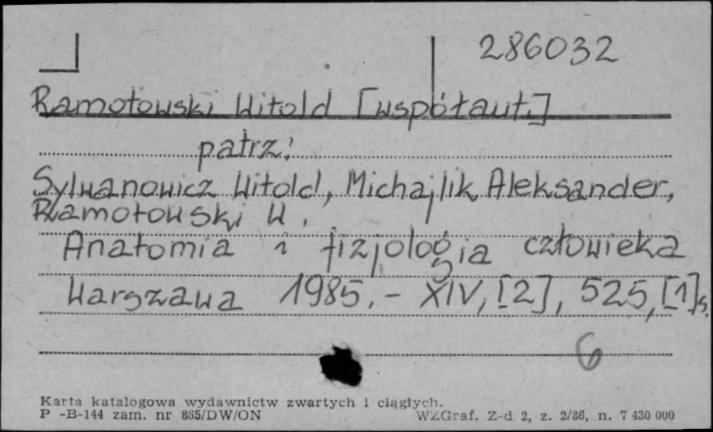 286032
Ramotowski Witold [współaut.]
patrz:
Sylwanowicz Witold, Michajlik Aleksander,
Ramotowski W.
Anatomia i fizjologia człowieka
Warszawa 1985. - XIV, [2], 525, [1] s.
6
Karta katalogowa wydawnictw zwartych i ciągłych.
P -B-144 zam. nr 885/DW/ON WZGraf. Z-d 2, z. 2/86, n. 7 430 000